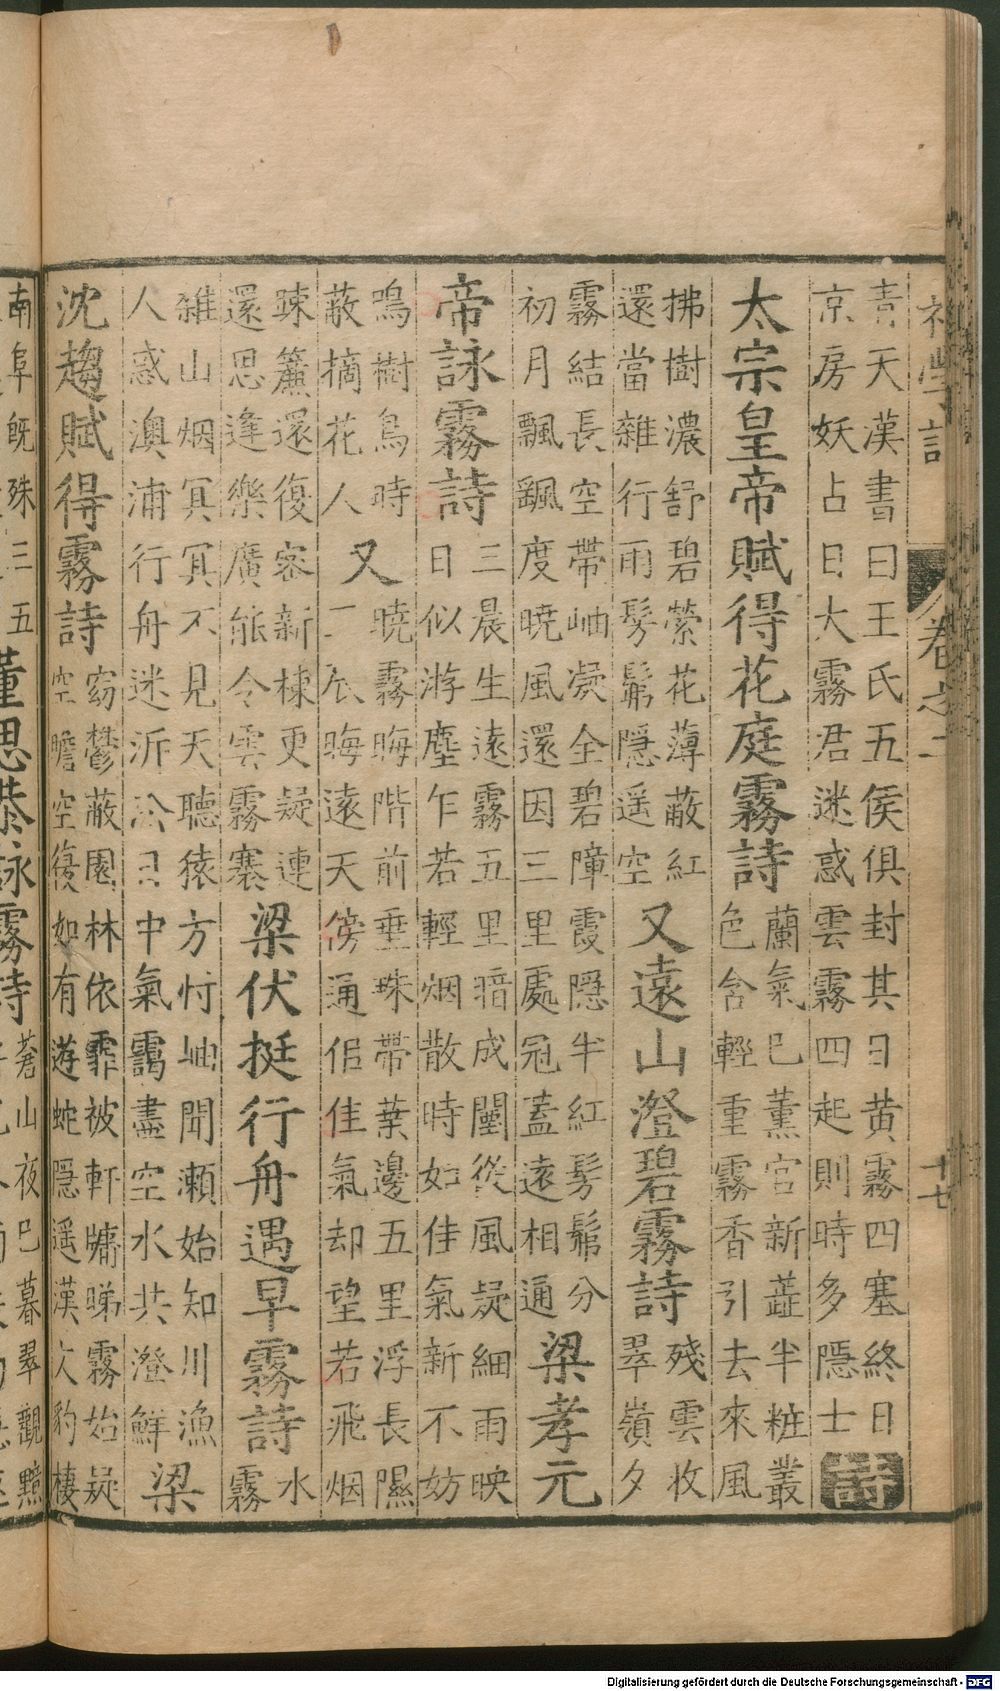 青天漢書曰王氏五侯俱封其日黄霧四塞終日
京房妖占曰大霧君迷惑雲霧四起則時多隱士 詩
太宗皇帝賦得花庭霧詩 蘭氣已薰宮新蘂半粧叢
色含輕重霧香引去來風
拂樹濃舒碧縈花薄蔽紅
還當雜行雨髣髴隱遥空
又遠山澄碧霧詩 殘雲收
翠嶺夕
霧結長空帶岫凝全碧障霞隱半紅髣髴分
初月飄飄度曉風還因三里處冠蓋遠相通 梁孝元
帝詠霧詩 三晨生遠霧五里暗成闉從風疑細雨映
日似游塵乍若輕烟散時如佳氣新不妨
鳴樹鳥時
蔽摘花人
又 曉霧晦階前垂珠帶葉邊五里浮長隰
二辰晦遠天傍通佀佳氣却望若飛烟
踈簾還復密新棟更疑連
還思逢樂廣能令雲霧褰
梁伏挺行舟遇早霧詩 水
霧
雜山烟冥冥不見天聴猿方忖岫聞瀬始知川漁
人惑澳浦行舟迷泝㳂日中氣靄盡空水共澄鮮 梁
沈趨賦得霧詩 窈鬱蔽園林依霏被軒牖睇霧始疑
空瞻空復如有遊蛇隱遥漢文豹棲
南阜旣殊三五
董思恭詠霧詩 蒼山夜已暮翠觀黯
卷之二
十七
Digitalisierung gefördert durch die Deutsche Forschungsgemeinschaft - DFG